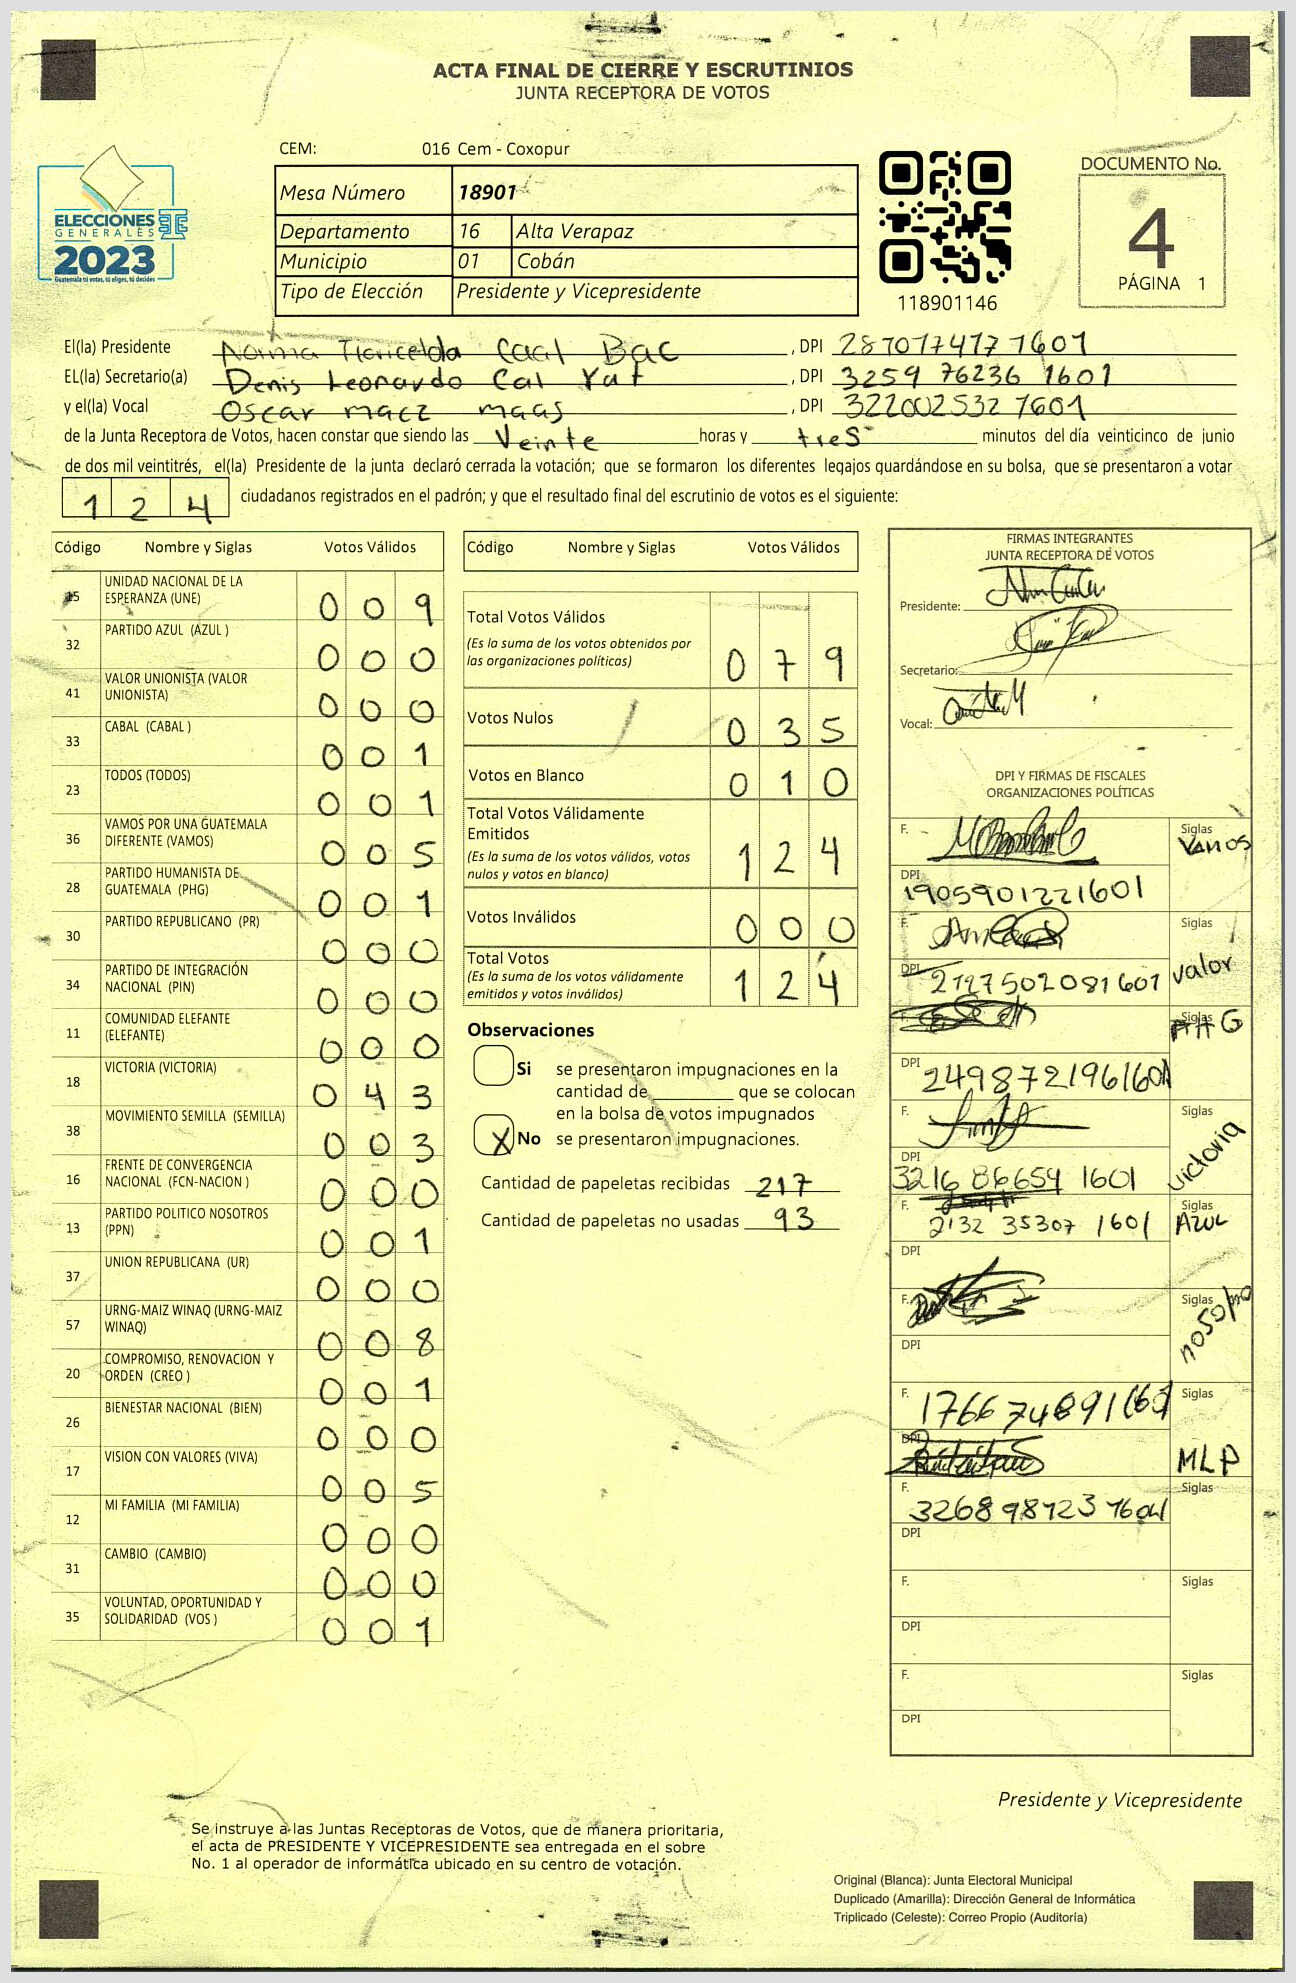 ACTA FINAL DE CIERRE Y ESCRUTINIOS
JUNTA RECEPTORA DE VOTOS
CEM: 016 Cem - Coxopur
Mesa Número 18901
Departamento 16 Alta Verapaz
Municipio 01 Cobán
Tipo de Elección Presidente y Vicepresidente
ELECCIONES
GENERALES
2023
Guatemala tú votas, tú eliges, tú decides
118901146
DOCUMENTO No.
4
PÁGINA 1
El(la) Presidente Norma Floricelda Caal Bac , DPI 2870174177601
EL(la) Secretario(a) Denis Leonardo Cal Yat , DPI 3259 76236 1601
y el(la) Vocal Oscar macz maas , DPI 322002532 1601
de la Junta Receptora de Votos, hacen constar que siendo las Veinte horas y tres minutos del día veinticinco de junio
de dos mil veintitrés, el(la) Presidente de la junta declaró cerrada la votación; que se formaron los diferentes legajos guardándose en su bolsa, que se presentaron a votar
1 2 4 ciudadanos registrados en el padrón; y que el resultado final del escrutinio de votos es el siguiente:
Código Nombre y Siglas Votos Válidos
15 UNIDAD NACIONAL DE LA ESPERANZA (UNE) 0 0 9
32 PARTIDO AZUL (AZUL ) 0 0 0
41 VALOR UNIONISTA (VALOR UNIONISTA) 0 0 0
33 CABAL (CABAL ) 0 0 1
23 TODOS (TODOS) 0 0 1
36 VAMOS POR UNA GUATEMALA DIFERENTE (VAMOS) 0 0 5
28 PARTIDO HUMANISTA DE GUATEMALA (PHG) 0 0 1
30 PARTIDO REPUBLICANO (PR) 0 0 0
34 PARTIDO DE INTEGRACIÓN NACIONAL (PIN) 0 0 0
11 COMUNIDAD ELEFANTE (ELEFANTE) 0 0 0
18 VICTORIA (VICTORIA) 0 4 3
38 MOVIMIENTO SEMILLA (SEMILLA) 0 0 3
16 FRENTE DE CONVERGENCIA NACIONAL (FCN-NACION ) 0 0 0
13 PARTIDO POLITICO NOSOTROS (PPN) 0 0 1
37 UNION REPUBLICANA (UR) 0 0 0
57 URNG-MAIZ WINAQ (URNG-MAIZ WINAQ) 0 0 8
20 COMPROMISO, RENOVACION Y ORDEN (CREO ) 0 0 1
26 BIENESTAR NACIONAL (BIEN) 0 0 0
17 VISION CON VALORES (VIVA) 0 0 5
12 MI FAMILIA (MI FAMILIA) 0 0 0
31 CAMBIO (CAMBIO) 0 0 0
35 VOLUNTAD, OPORTUNIDAD Y SOLIDARIDAD (VOS ) 0 0 1
Código Nombre y Siglas Votos Válidos
Total Votos Válidos
(Es la suma de los votos obtenidos por
las organizaciones políticas) 0 7 9
Votos Nulos 0 3 5
Votos en Blanco 0 1 0
Total Votos Válidamente
Emitidos
(Es la suma de los votos válidos, votos
nulos y votos en blanco) 1 2 4
Votos Inválidos 0 0 0
Total Votos
(Es la suma de los votos válidamente
emitidos y votos inválidos) 1 2 4
Observaciones
Si se presentaron impugnaciones en la
cantidad de que se colocan
en la bolsa de votos impugnados
X No se presentaron impugnaciones.
Cantidad de papeletas recibidas 217
Cantidad de papeletas no usadas 93
FIRMAS INTEGRANTES
JUNTA RECEPTORA DE VOTOS
Presidente:
Secretario:
Vocal:
DPI Y FIRMAS DE FISCALES
ORGANIZACIONES POLÍTICAS
F. Siglas VAMOS
DPI 1905901221601
F. Siglas valor
DPI 2127502081601
F. Siglas
DPI 2498721961601
F. Siglas victoria
DPI 3216 86654 1601
F. 2132 35307 1601 Siglas AZUL
DPI
F. Siglas
DPI
F. Siglas
DPI MLP
F. Siglas
DPI
F. Siglas
DPI
F. Siglas
DPI
Presidente y Vicepresidente
Se instruye a las Juntas Receptoras de Votos, que de manera prioritaria,
el acta de PRESIDENTE Y VICEPRESIDENTE sea entregada en el sobre
No. 1 al operador de informática ubicado en su centro de votación.
Original (Blanca): Junta Electoral Municipal
Duplicado (Amarilla): Dirección General de Informática
Triplicado (Celeste): Correo Propio (Auditoría)